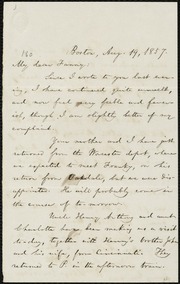 Boston, Aug. 19, 1857.
My dear Fanny:
Since I wrote to you last even-
ing, I have continued quite unwell,
and now feel very feeble and fever-
ish, though I am slightly better of my
complaint.
Your mother and I have just
returned from the Worcester depot, where
we expected to meet Franky, on his
return from, but we were dis-
appointed. He will probably come in
the course of to-morrow.
Uncle Henry Anthony and aunt
Charlotte have been making us a visit
to-day, together with Henry's brother John
and his wife, from Cincinnati. They
returned to P. in the afternoon train.